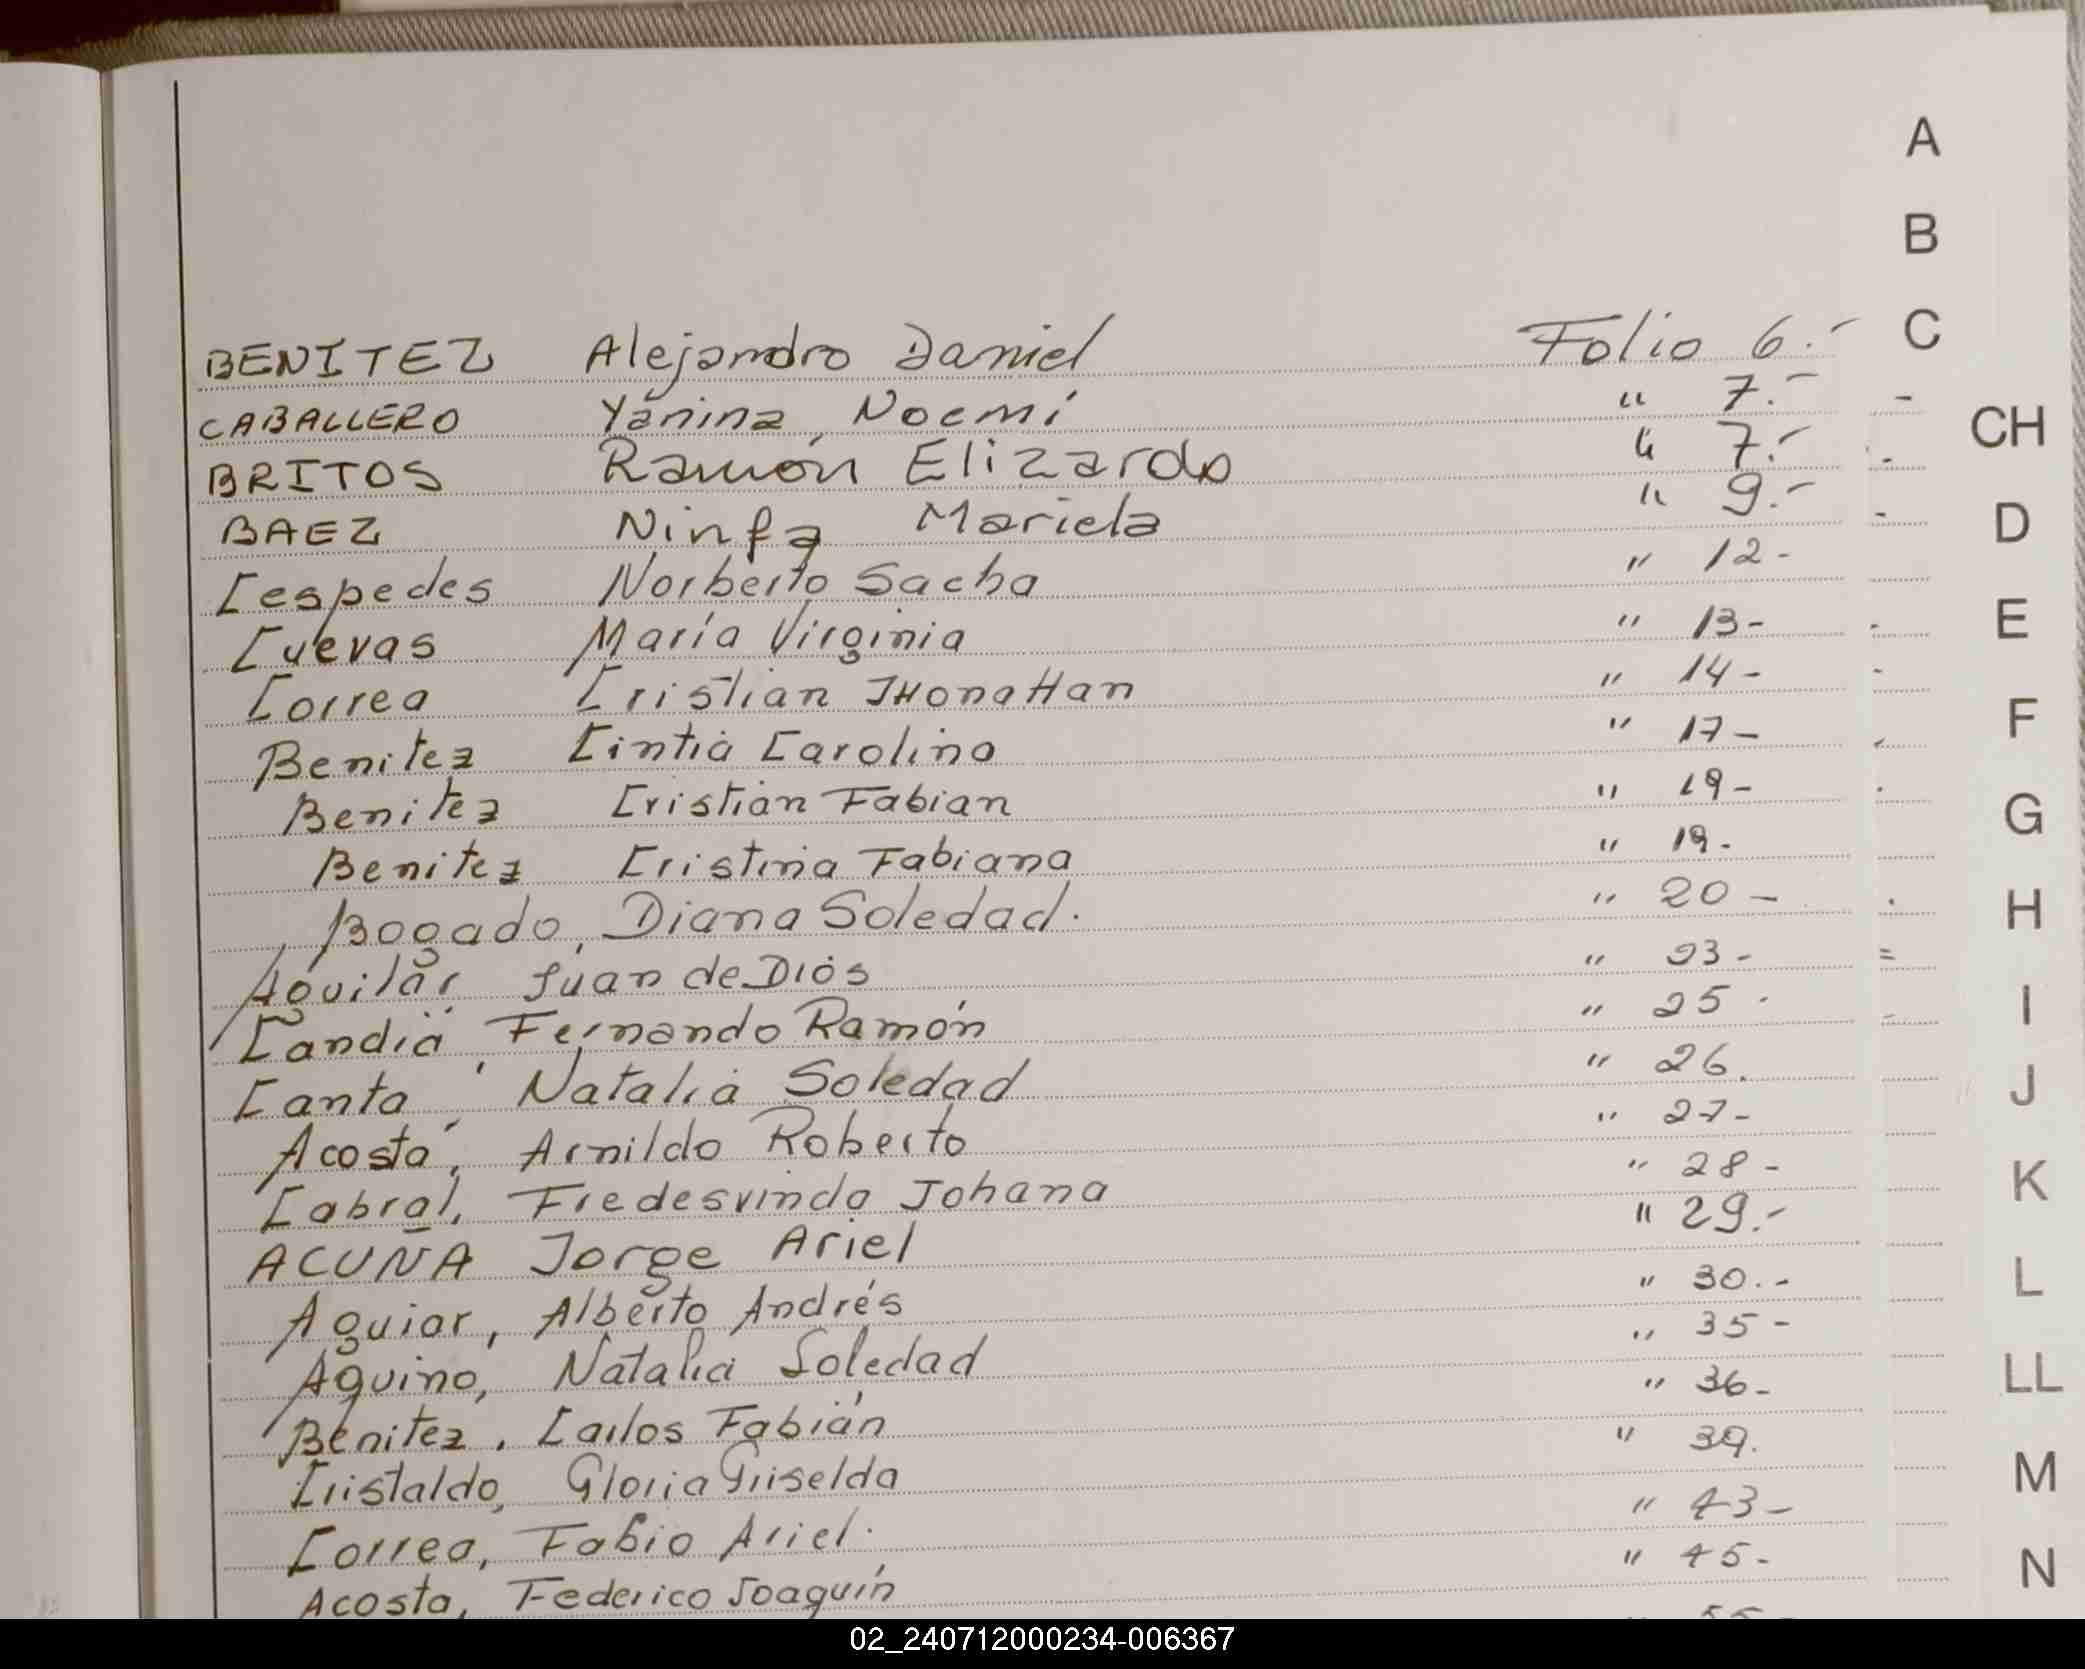 A
B
BENITEZ Alejandro Daniel Folio 6.- C
CABALLERO Yanina Noemí " 7.- -
BRITOS Ramón Elizardo " 7.- - CH
BAEZ Ninfa Mariela " 9.- - D
Cespedes Norberto Sacha " 12-
Cuevas María Virginia " 13- - E
Correa Cristian Jhonattan " 14- -
Benitez Cintia Carolina " 17- - F
Benitez Cristian Fabian " 19- . G
Benitez Cristina Fabiana " 19-
Bogado, Diana Soledad. " 20- . H
Aguilar, Juan de Dios " 23- =
Candia, Fernando Ramón " 25- - I
Canta, Natalia Soledad " 26. J
Acosta, Arnildo Roberto " 27-
Cabral, Fredesvinda Johana " 28- K
ACUÑA Jorge Ariel " 29.-
Aguiar, Alberto Andrés " 30.- L
Aquino, Natalia Soledad " 35-
Benitez, Carlos Fabián " 36- LL
Cristaldo, Gloria Griselda " 39. M
Correa, Fabio Ariel. " 43-
Acosta, Federico Joaquín " 45- N
02_240712000234-006367